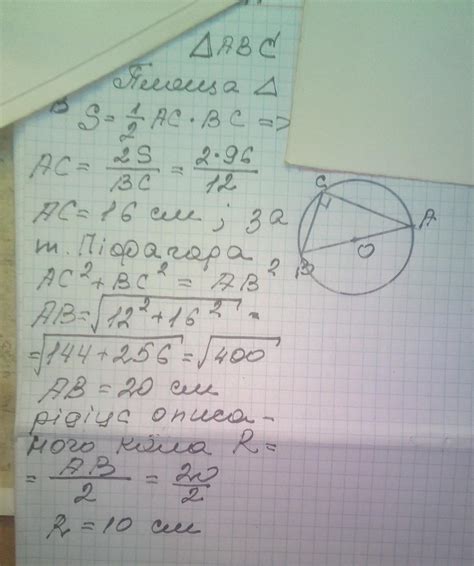 △ABC
Площа △
S = 1/2 AC · BC =>
AC = 2S/BC = 2·96/12
AC = 16 см ; за
т. Піфагора
AC² + BC² = AB²
AB = √12² + 16² =
= √144 + 256 = √400
AB = 20 см
радіус описа-
ного кола R =
= AB/2 = 20/2
R = 10 см
C
A
B
O